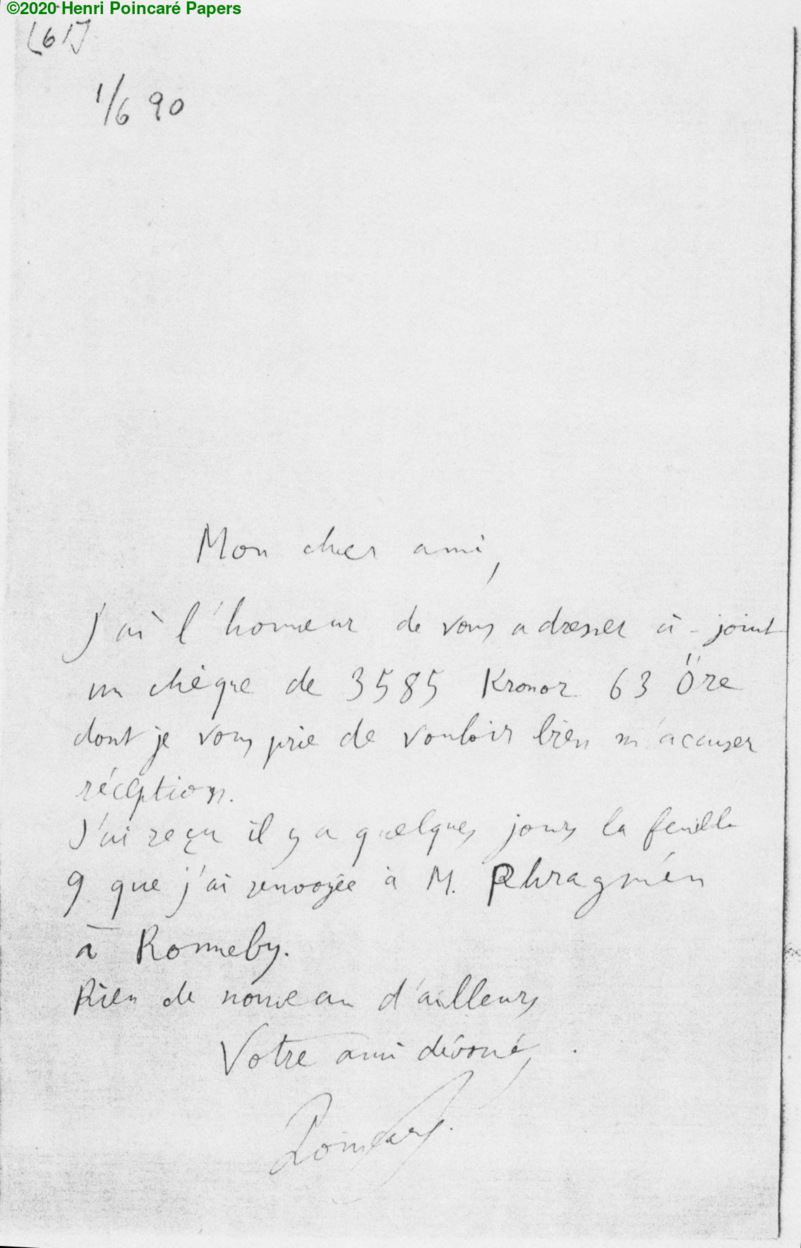 ©2020 Henri Poincaré Papers
[61]
1/6 90
Mon cher ami,
J'ai l'honneur de vous adresser ci-joint
un chèque de 3585 Kronor 63 Öre
dont je vous prie de vouloir bien m'accuser
réception.
J'ai reçu il y a quelques jours la feuille
9 que j'ai renvoyée à M. Phragmén
à Ronneby.
Rien de nouveau d'ailleurs
Votre ami dévoué,
Poincaré